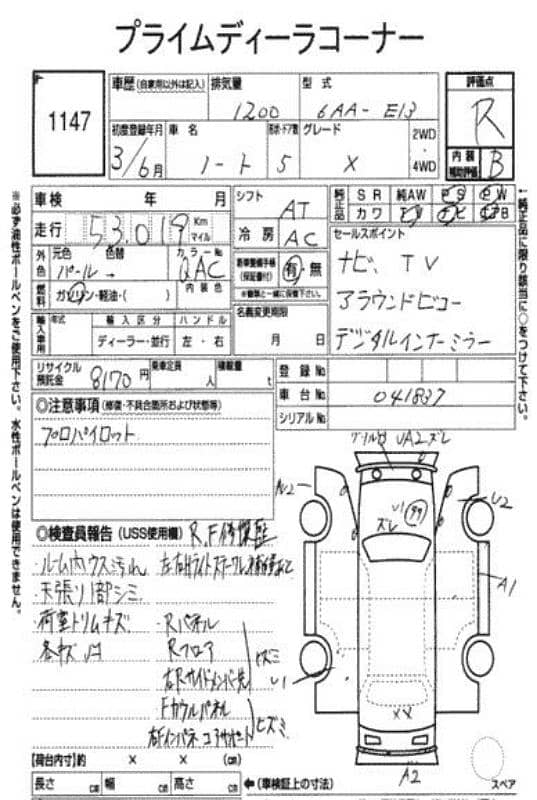 プライムディーラーコーナー
1147
車歴 (自家用以外は記入) 排気量 型式 評価点
1200 6AA-E13 R
初度登録年月 車名 形状・ドア数 グレード 2WD・4WD 内装補助評価 B
3/6月 ノート 5 X
車検 年 月 シフト AT 純正品 SR 純AW PS PW
走行 53,019 Km マイル カワ TV ナビ エアB
冷房 AC セールスポイント
外色 元色 色替 カラーNo 新車整備手帳(保証書付) 有・無 ナビ、TV
パール→ QAC ※書類と一緒に保管下さい。 アラウンドビュー
燃料 ガソリン・軽油・( ) 内装色 名義変更期限 デジタルインナーミラー
輸入車用 年式 輸入区分 ハンドル 月 日
ディーラー・並行 左・右
リサイクル預託金 8170円 乗車定員 人 積載量 t 登録No.
車台No. 041837
シリアルNo.
◎注意事項 (修復・不具合箇所および状態等)
プロパイロット
グリル UA2 ズレ
U2
U1 99
ズレ
A1
U1
XX
A2
◎検査員報告 (USS使用欄) R,F修復歴
ルーム内ウス汚れ
天張り1部シミ
荷室トリムキズ Rパネル
各キズ凹 Rフロア
右Rサイドメンバー先 ヒズミ
Fカウルパネル
右Fインパネ コアサポート ヒズミ
【荷台内寸】約 × × (cm)
長さ cm 幅 cm 高さ cm ←(車検証上の寸法) スペア
※必ず油性ボールペンをご使用下さい。水性ボールペンは使用できません。
←純正品に限り該当に○をつけて下さい。